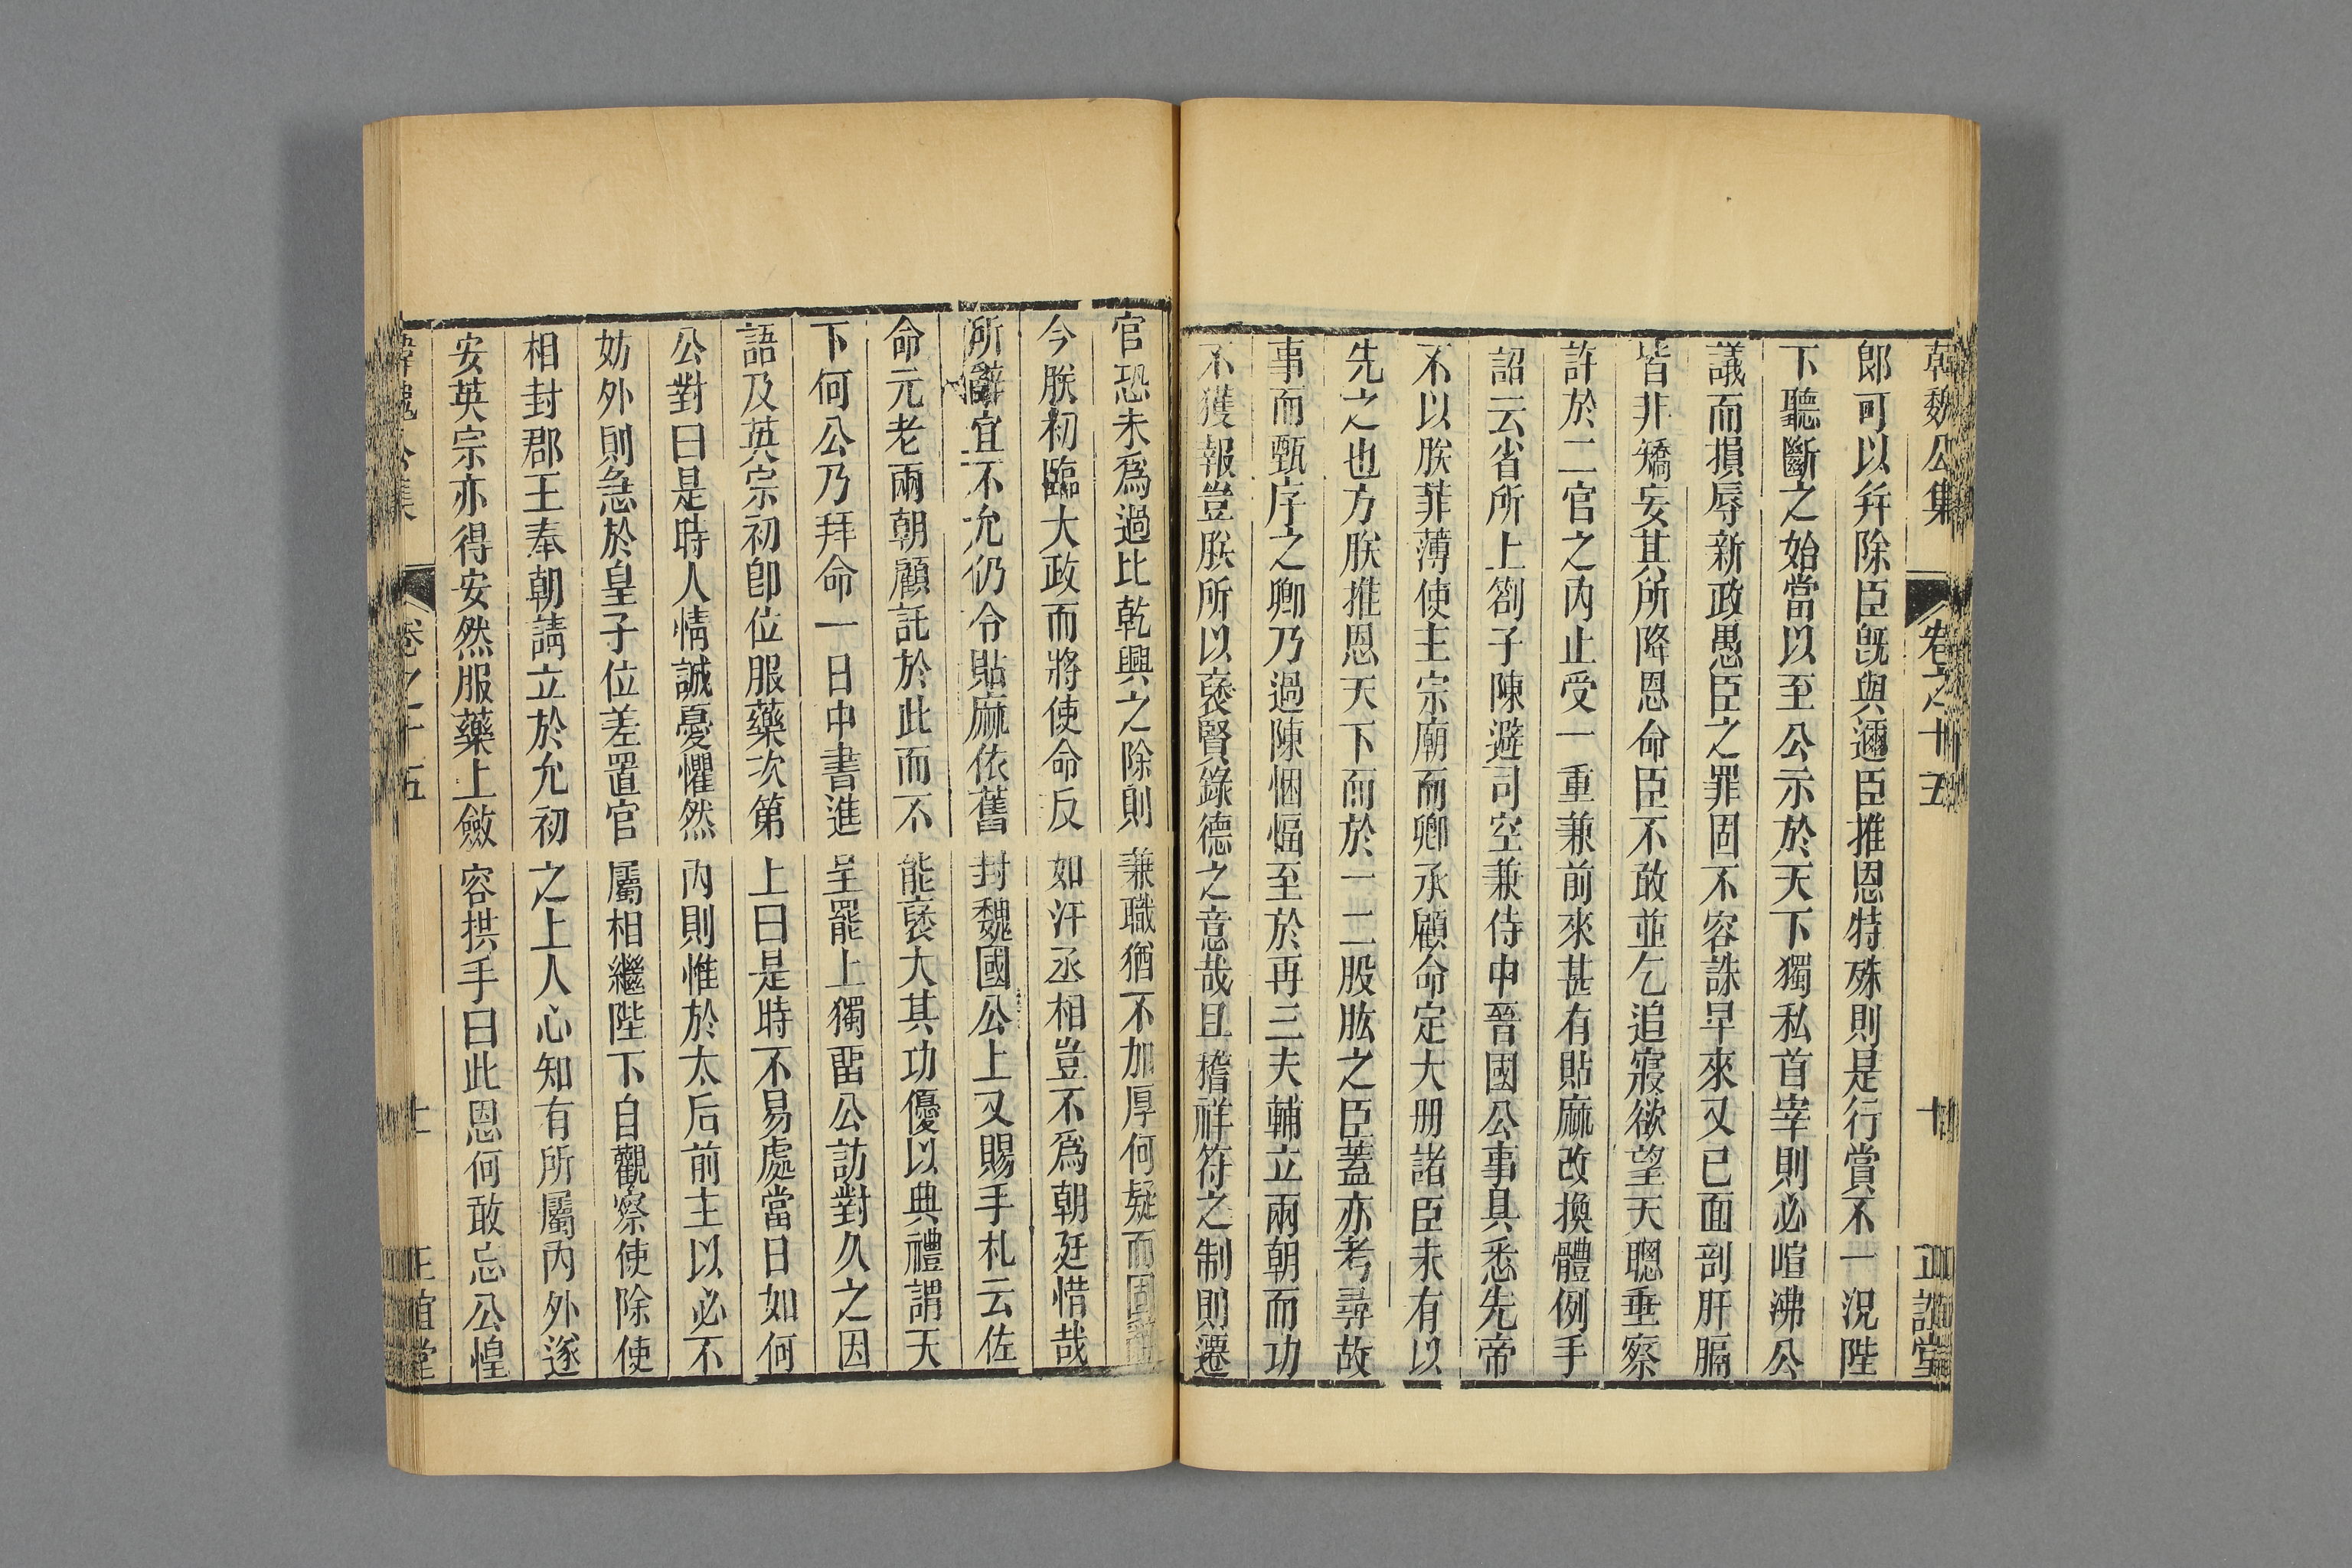 韓魏公集 卷之十五 十 正誼堂
郎可以幷除臣旣與邇臣推恩特殊則是行賞不一況陛
下聽斷之始當以至公示於天下獨私首宰則必喧沸公
議而損辱新政愚臣之罪固不容誅早來又已面剖肝膈
皆非矯妄其所降恩命臣不敢並乞追寢欲望天聰垂察
許於二官之內止受一重兼前來甚有貼麻改換體例手
詔云省所上劄子陳避司空兼侍中晉國公事具悉先帝
不以朕菲薄使主宗廟而卿承顧命定大册諸臣未有以
先之也方朕推恩天下而於一二股肱之臣蓋亦考尋故
事而甄序之卿乃過陳悃愊至於再三夫輔立兩朝而功
不獲報豈朕所以褒賢錄德之意哉且稽祥符之制則遷
官恐未爲過比乾興之除則兼職猶不加厚何疑而固
今朕初臨大政而將使命反如汗丞相豈不爲朝廷惜哉
所辭宜不允仍令貼麻依舊封魏國公上又賜手札云佐
命元老兩朝顧託於此而不能褒大其功優以典禮謂天
下何公乃拜命一日中書進呈罷上獨畱公訪對久之因
語及英宗初卽位服藥次第上曰是時不易處當日如何
公對曰是時人情誠憂懼然內則惟於太后前主以必不
妨外則急於皇子位差置官屬相繼陛下自觀察使除使
相封郡王奉朝請立於允初之上人心知有所屬內外遂
安英宗亦得安然服藥上斂容拱手曰此恩何敢忘公惶
韓魏公集 卷之十五 十一 正誼堂